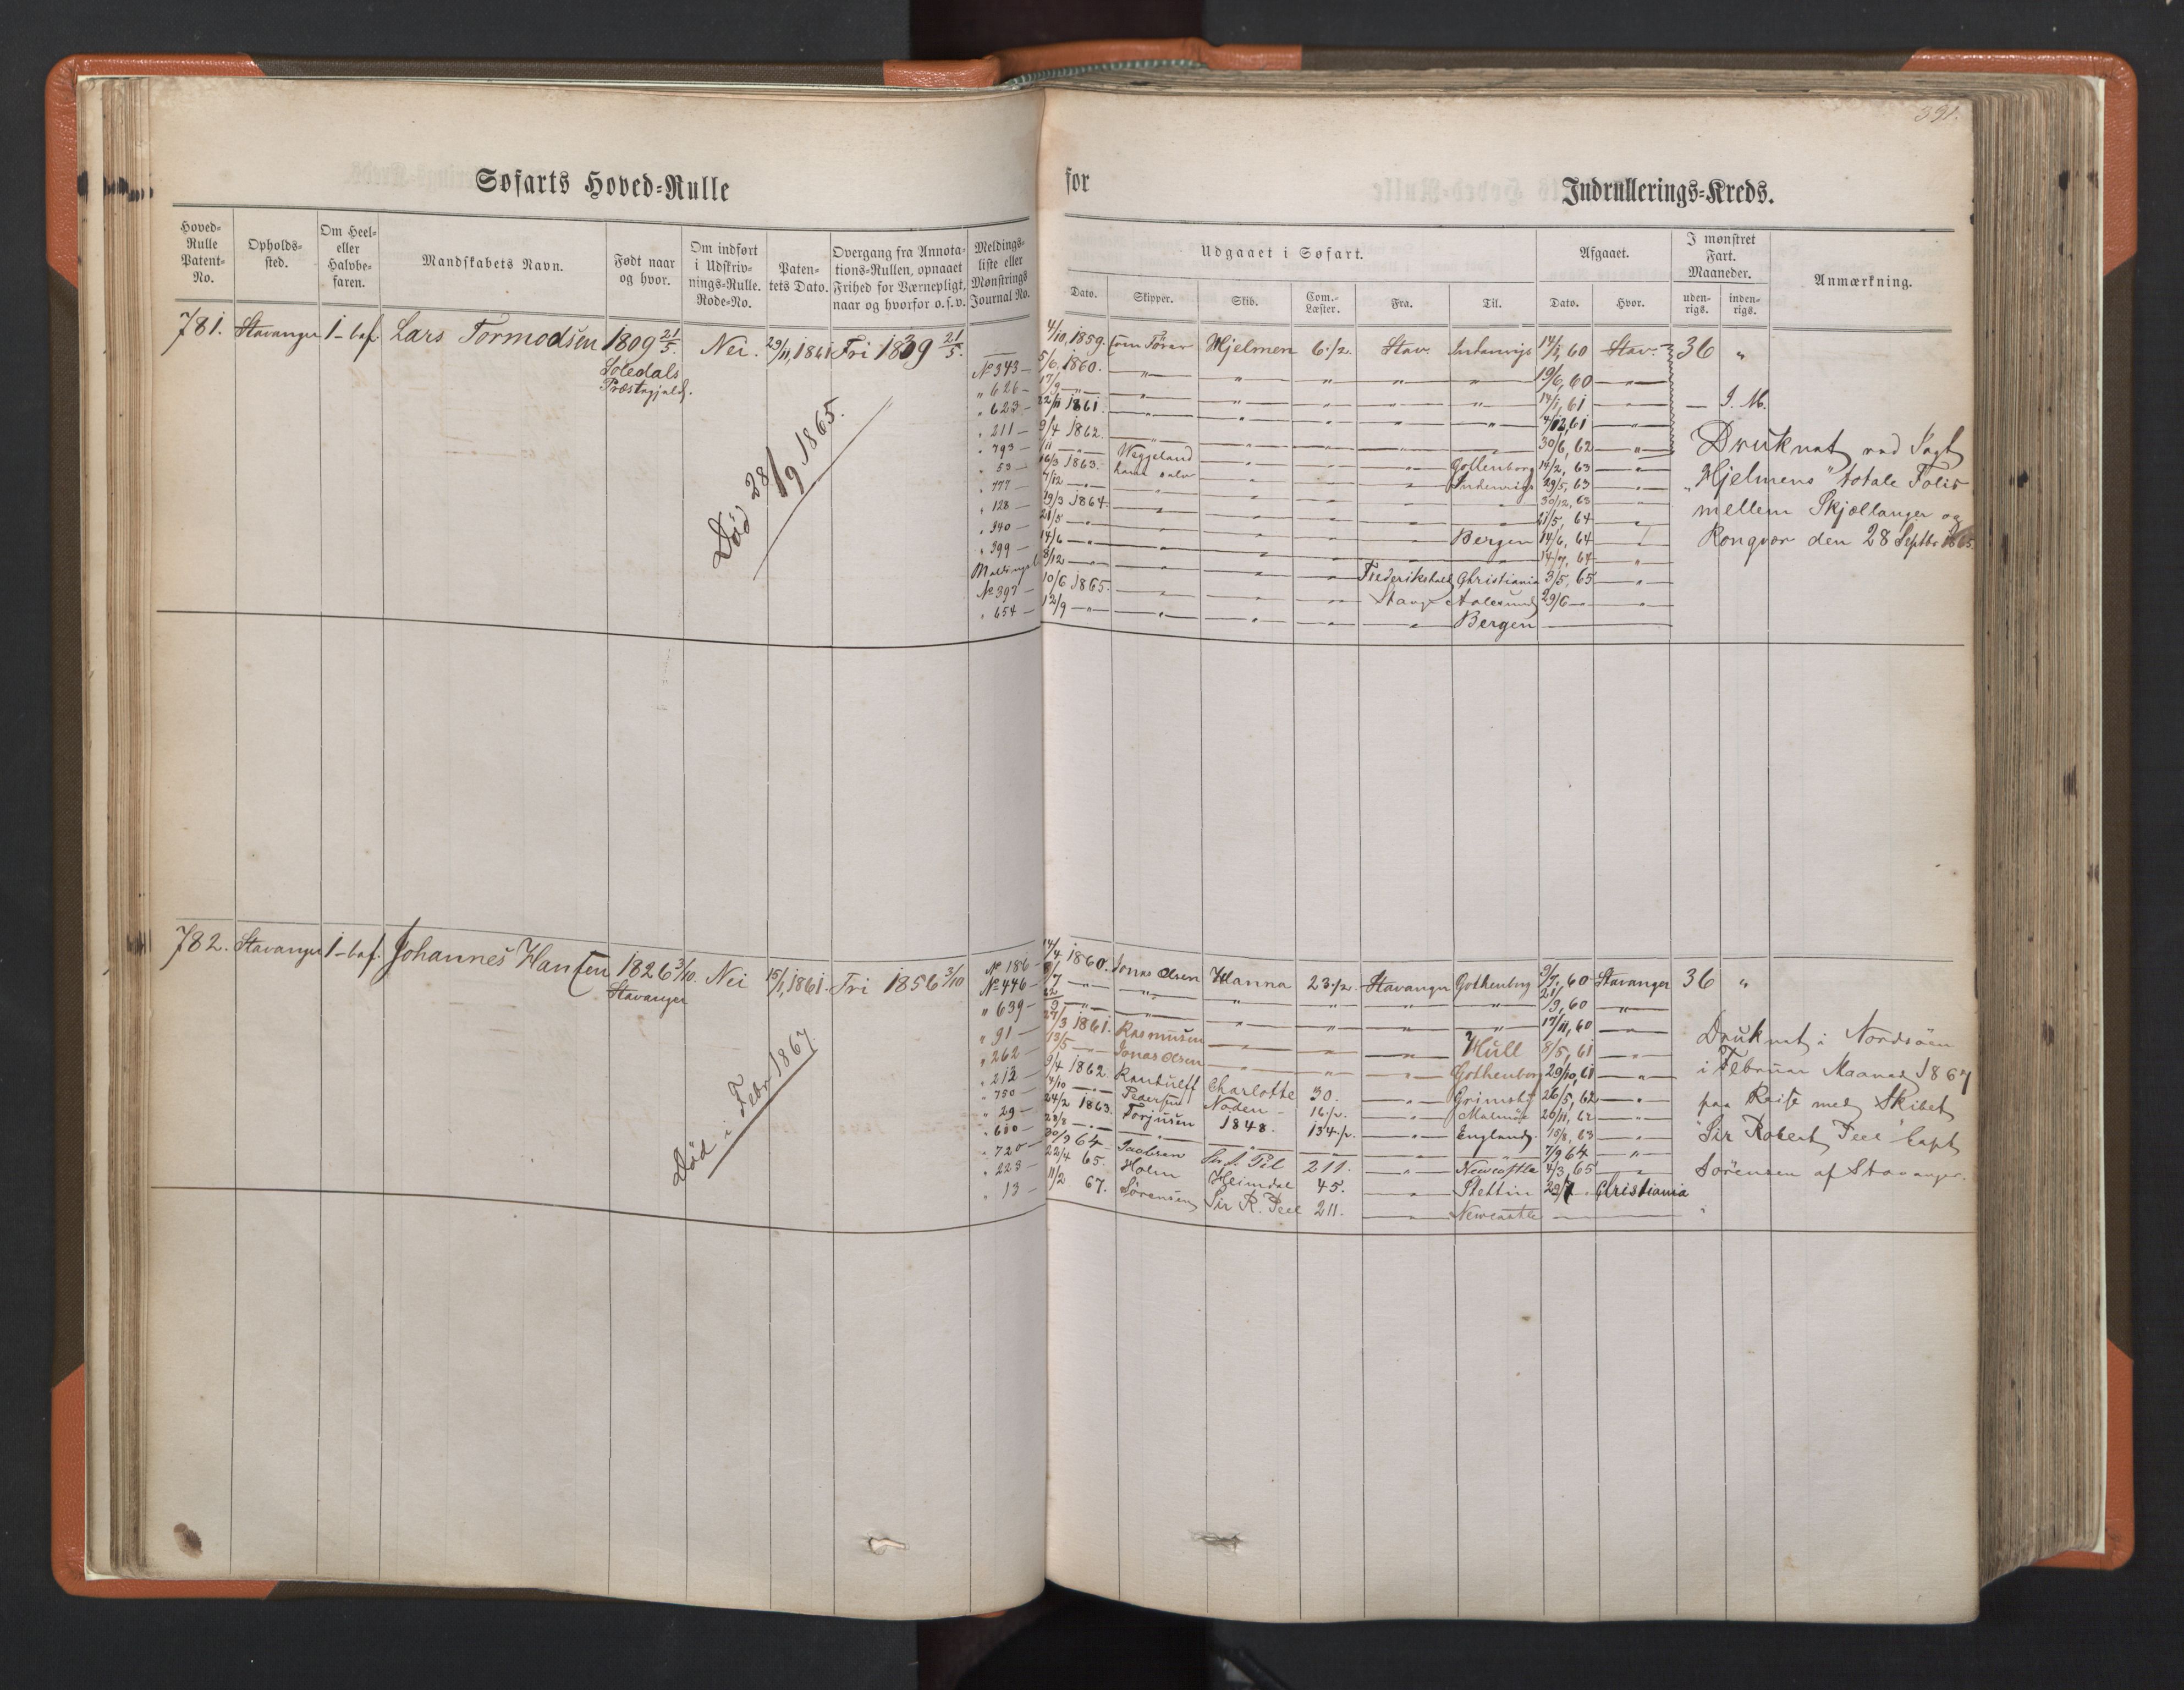 391.
Søfarts Hoved=Rulle for Indrullerings=Kreds.
Hoved= Rulle Patent= No.
Opholds= sted.
Om Heel= eller Halvbe= faren.
Mandskabets Navn.
Født naar og hvor.
Om indført i Udskriv= nings=Rulle. Rode=No.
Paten= tets Dato.
Overgang fra Annota= tions=Rullen, opnaaet Frihed for Værnepligt, naar og hvorfor o.s.v.
Meldings= liste eller Mønstrings Journal No.
Udgaaet i Søfart.
Dato. Skipper. Skib. Com.= Læster. Fra. Til.
Afgaaet.
Dato. Hvor.
I mønstret Fart. Maaneder.
uden= rigs. inden= rigs.
Anmærkning.
781. Stavanger 1-bef. Lars Tormodsen 1809 21/5. Nei. 29/11, 1861 Fri 1839 21/5.
Præstegjeld.
Død 28/9 1865.
4/10, 1859. Hjelmen 6 1/2. Stav. Indenrigs 14/1, 60 Stav. 36 "
No 343 — 5/6, 1860. — " — " — " — " — " 19/6, 60 — " —
" 626 — 17/9 — " — 14/1, 61 — " — — I. M.
" 623 — 22/11 1861. 4/12, 61 — " —
" 211 — 9/4 1862. 30/6, 62 — " —
" 793 — Weggeland Gottenborg 14/2, 63 — " —
" 53 — 16/3 1863. Indenrigs 29/5, 63 — " —
" 777 — 4/12 — " — 30/12, 63
" 128 — 29/3 1864. 21/5, 64 — " —
" 340 — 21/5 — " — Bergen 14/6, 64 — " —
" 399 — 14/6 — " — 14/7, 64 — " —
8/12 — " — Frederikshald Christiania 3/5, 65 — " —
No 397 — 10/6 1865. Aalesund 29/6 — " —
" 654 — 12/9 — " — Bergen
Druknat ved Jagt
"Hjelmens" totale Forlis
mellem Skjællanger og
Rongvær den 28 Septbr 1865
782. Stavanger 1-bef. Johannes Hansen 1826 3/10. Nei 15/1, 1861. Fri 1856 3/10
Stavanger
Død i Febr 1867.
No 186 — 14/4 1860. Jonas Olsen Hanna 23 1/2. Stavanger Gothenborg 9/7, 60 Stavanger 36 "
No 446 — /7 — " — 21/9, 60 — " —
" 639 — 22/9 — " — 17/11, 60 — " —
" 91 — 27/3 1861. Rasmusen Hull 8/5, 61 — " —
" 262 — 13/5 — " — Jonas Olsen Gothenborg 29/10, 61 — " —
" 212 — 9/4 1862 Charlotte 30. Grimsby 26/5, 62 — " —
" 750 — 4/10 — " — Pedersen Noden — 16 1/2. 26/11, 62 — " —
" 29 — 24/2 1863. Torjusen 1848. 134 1/2. England. 15/8, 63 — " —
" 600 — 28/8 — " — 7/9 64 — " —
" 720 — 30/9 64. Jacobsen 211. Newcastle 4/3, 65 — " —
" 223 — 22/4 65. Holm Heimdal 45. Stettin 29/7 — Christiania
" 13 — 11/2 67. Sørensen Sir R. Peel 211. Newcastle
Druknet i Nordsøen
i Februar Maaned 1867
paa Reise med Skibet
"Sir Robert Peel" Capt
Sørensen af Stavanger.